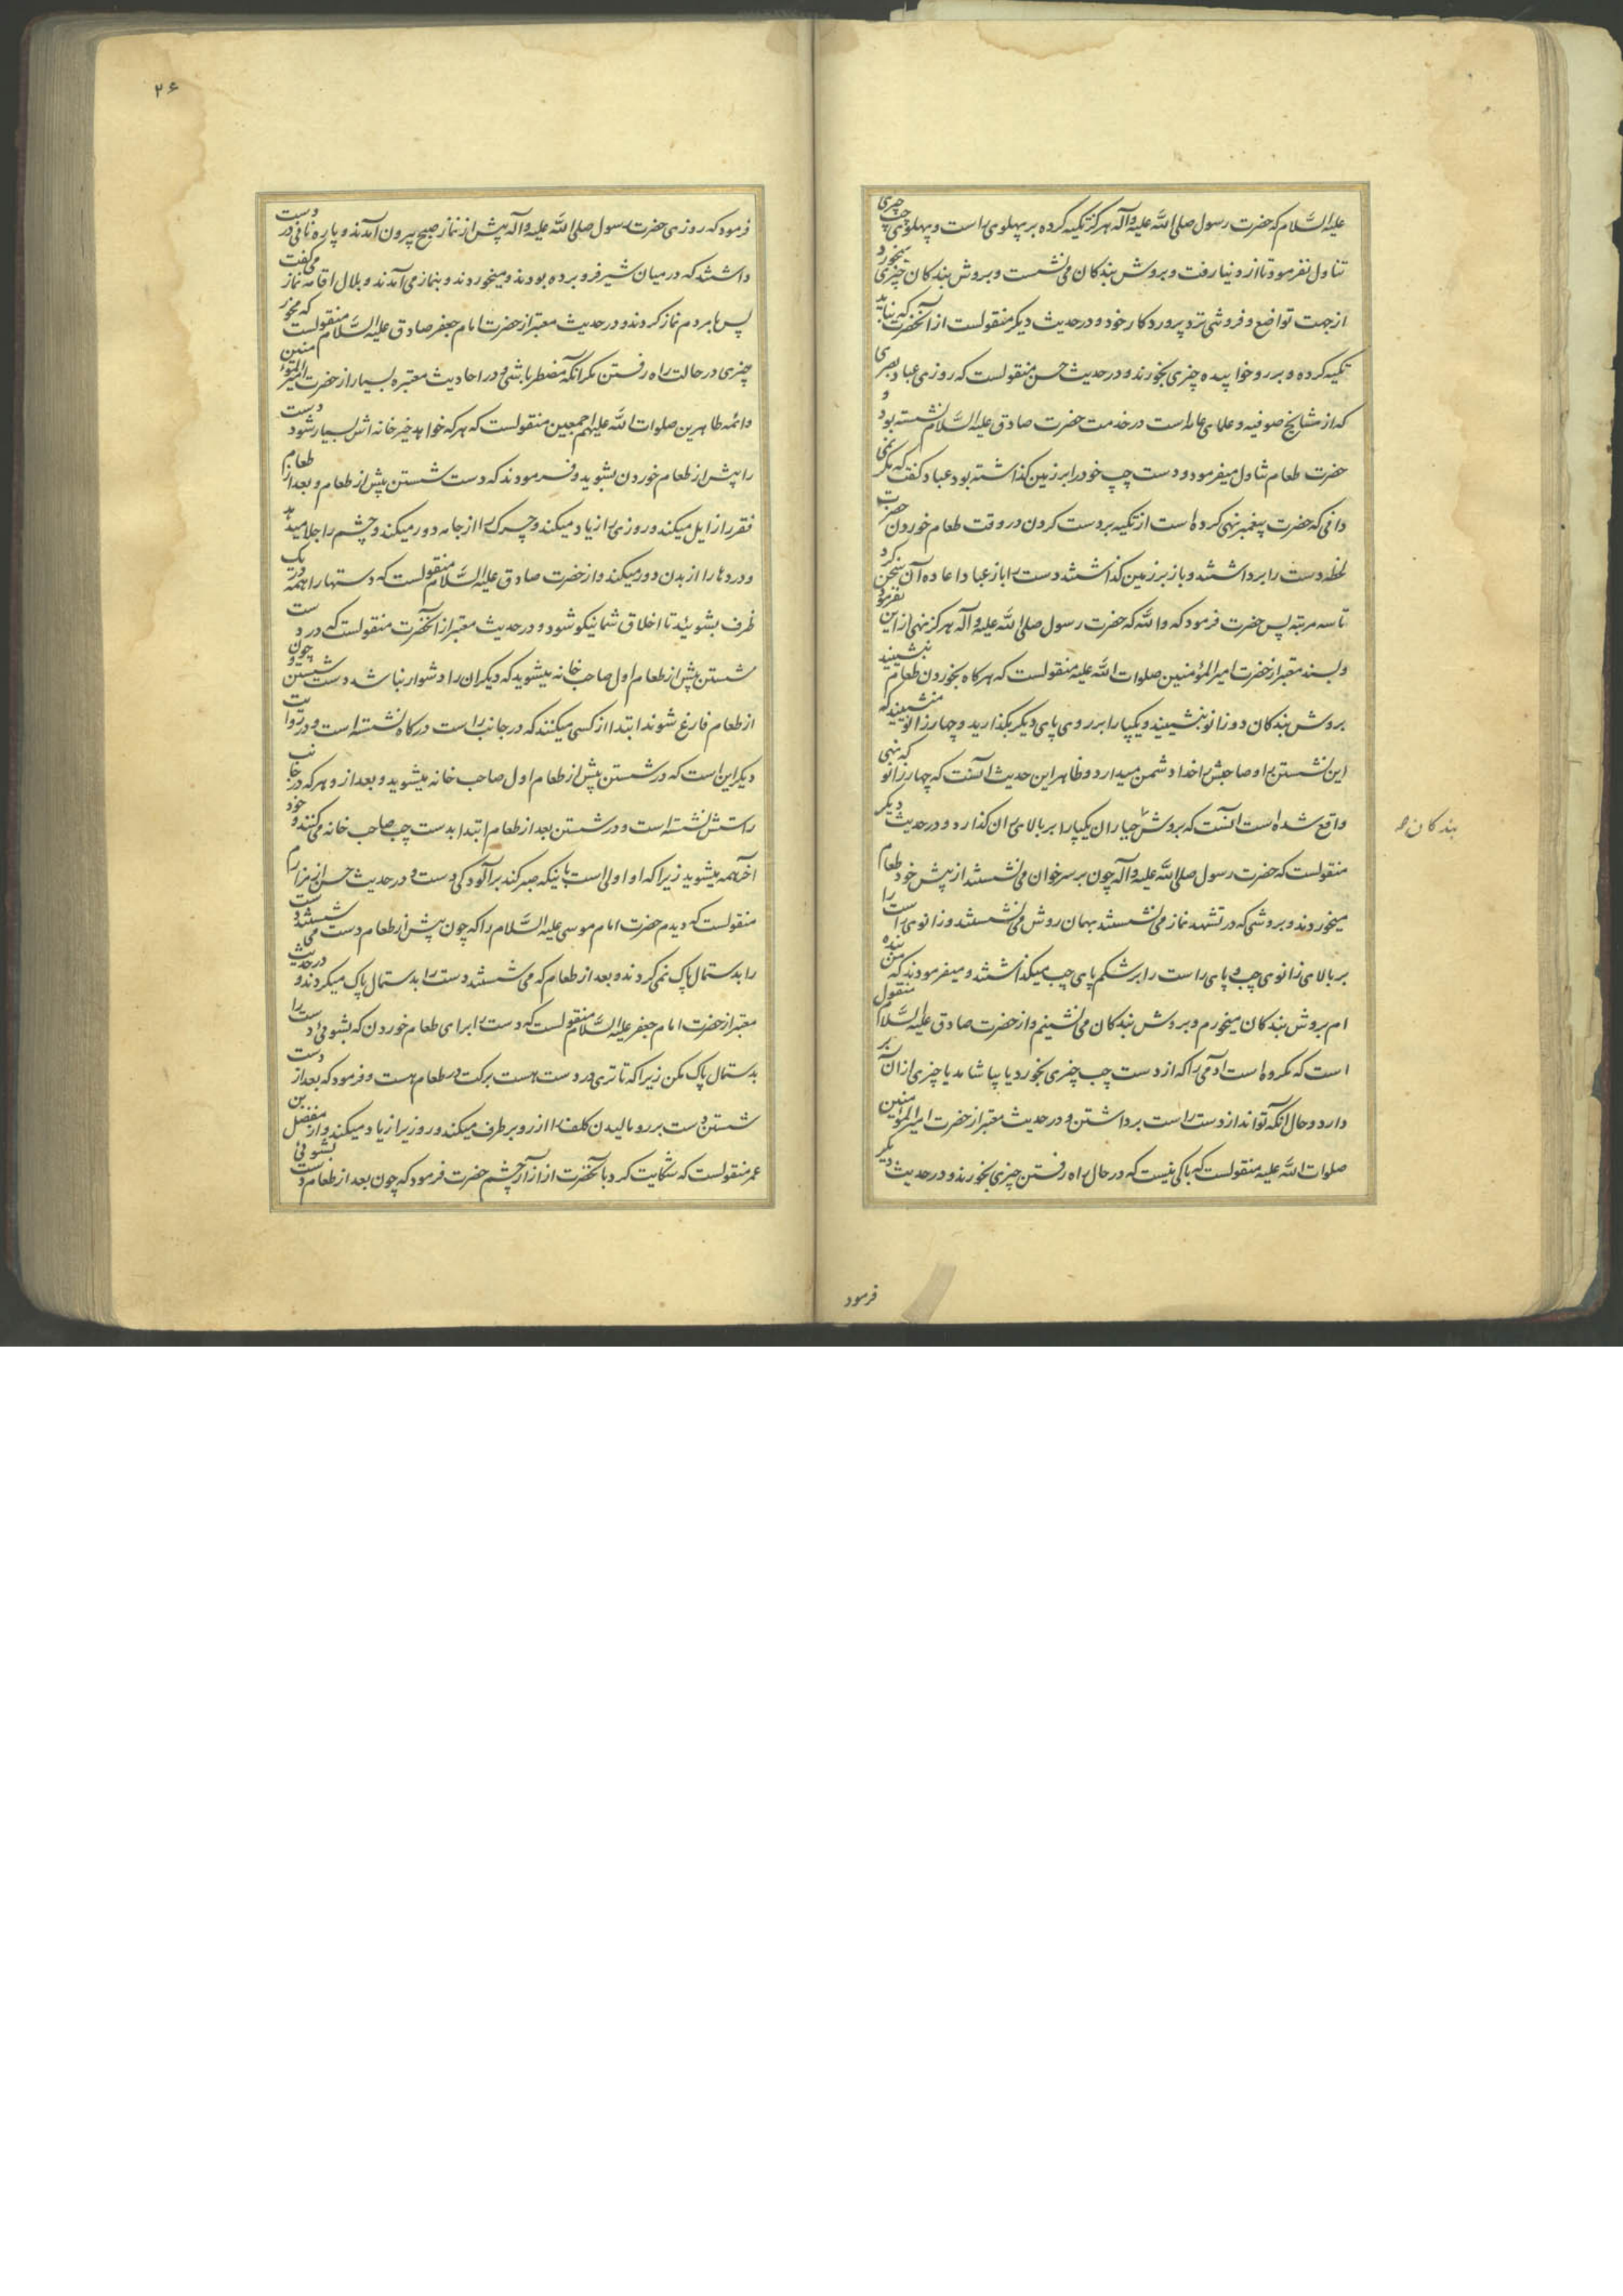 علیه السّلام که حضرت رسول صلی اللّه علیه و آله هرگز تکیه کرده بر پهلوی راست و پهلوی چپ چیزی
تناول نفرمود تا از دنیا رفت و بروش بندکان می نشست و بروش بندکان چیزی میخورد
از جهت تواضع و فروتنی نزد پروردکار خود و در حدیث دیکر منقولست از آنحضرت که نباید
تکیه کرده و بر رو خوابیده چیزی بخورند و در حدیث حسن منقولست که روزی عباد بصری
که از مشایخ صوفیه و علمای عامه است در خدمت حضرت صادق علیه السّلام نشسته بود و
حضرت طعام تناول میفرمود و دست چپ خود را بر زمین کذاشته بود عباد کفت که مکر نمی
دانی که حضرت پیغمبر نهی کرده است از تکیه بر دست کردن در وقت طعام خوردن حضرت
لحظه دست را برداشتند و باز بر زمین کذاشتند دست را باز عباد اعاده آن سخن کرد
تا سه مرتبه پس حضرت فرمود که واللّه که حضرت رسول صلی اللّه علیه و آله هرکز نهی از این نفرمود
و بسند معتبر از حضرت امیر المؤمنین صلوات اللّه علیه منقولست که هرکاه بخوردن طعام بنشینید
بروش بندکان دو زانو بنشینید و یکپا را بر روی پای دیکر مکذارید و چهار زانو منشینید که
این نشستن را و صاحبش را خدا دشمن میدارد و ظاهر این حدیث آنست که چهار زانو که نهی
واقع شده است آنست که بروش جباران یکپا را بر بالای ران کذارد و در حدیث دیکر
بندکان
منقولست که حضرت رسول صلی اللّه علیه و آله چون بر سر خوان می نشستند از پیش خود طعام
میخوردند و بروشی که در تشهد نماز می نشستند بهمان روش می نشستند و زانوی راست را
بر بالای زانوی چپ و پای راست را بر شکم پای چپ میکذاشتند و میفرمودند که من بنده
ام بروش بندکان میخورم و بروش بندکان می نشینم و از حضرت صادق علیه السّلام منقول
است که مکروه است آدمی را که از دست چپ چیزی بخورد یا بیاشامد یا چیزی از آن بر
دارد و حال آنکه تواند از دست راست برداشتن و در حدیث معتبر از حضرت امیر المؤمنین
صلوات اللّه علیه منقولست که باکی نیست که در حال راه رفتن چیزی بخورند و در حدیث دیکر
فرمود
۲۶
فرمود که روزی حضرت رسول صلی اللّه علیه و آله پیش از نماز صبح بیرون آمدند و پاره نانی در دست
داشتند که در میان شیر فرو برده بودند و میخوردند و بنماز می آمدند و بلال اقامه نماز می کفت
پس با مردم نماز کردند و در حدیث معتبر از حضرت امام جعفر صادق علیه السّلام منقولست که مخور
چیزی در حالت راه رفتن مکر آنکه مضطر باشی و در احادیث معتبره بسیار از حضرت امیر المؤمنین
و ائمه طاهرین صلوات اللّه علیهم اجمعین منقولست که هر که خواهد خیر خانه اش بسیار شود دست
را پیش از طعام خوردن بشوید و فرمودند که دست شستن پیش از طعام و بعد از طعام
فقر را زایل میکند و روزی را زیاد میکند و چرک را از جامه دور میکند و چشم را جلا میدهد
و دردها را از بدن دور میکند و از حضرت صادق علیه السّلام منقولست که دستها را همه در یک
ظرف بشوئید تا اخلاق شما نیکو شود و در حدیث معتبر از آنحضرت منقولست که در دست
شستن پیش از طعام اول صاحب خانه میشوید که دیکران را دشوار نباشد دست شستن و چون
از طعام فارغ شوند ابتدا از کسی میکنند که در جانب راست درکاه نشسته است و در روایت
دیکر این است که در شستن پیش از طعام اول صاحب خانه میشوید و بعد از و هر که در جانب
راستش نشسته است و در شستن بعد از طعام ابتدا بدست چپ صاحب خانه می کنند و خود
آخر همه میشوید زیرا که او اولی است باینکه صبر کند بر آلودکی دست و در حدیث حسن از مرازم
منقولست که دیدم حضرت امام موسی علیه السّلام را که چون پیش از طعام دست می شستند دست
را بدستمال پاک نمی کردند و بعد از طعام که می شستند دست را بدستمال پاک میکردند و در حدیث
معتبر از حضرت امام جعفر علیه السّلام منقولست که دست را برای طعام خوردن که بشوئی دست را
بدستمال پاک مکن زیرا که تا تری در دست هست برکت در طعام هست و فرمود که بعد از دست
شستن دست بر رو مالیدن کلف را از رو برطرف میکند و روزی را زیاد میکند و از مفضل بن
عمر منقولست که شکایت کرد بآنحضرت از آزار چشم حضرت فرمود که چون بعد از طعام دست بشوئی